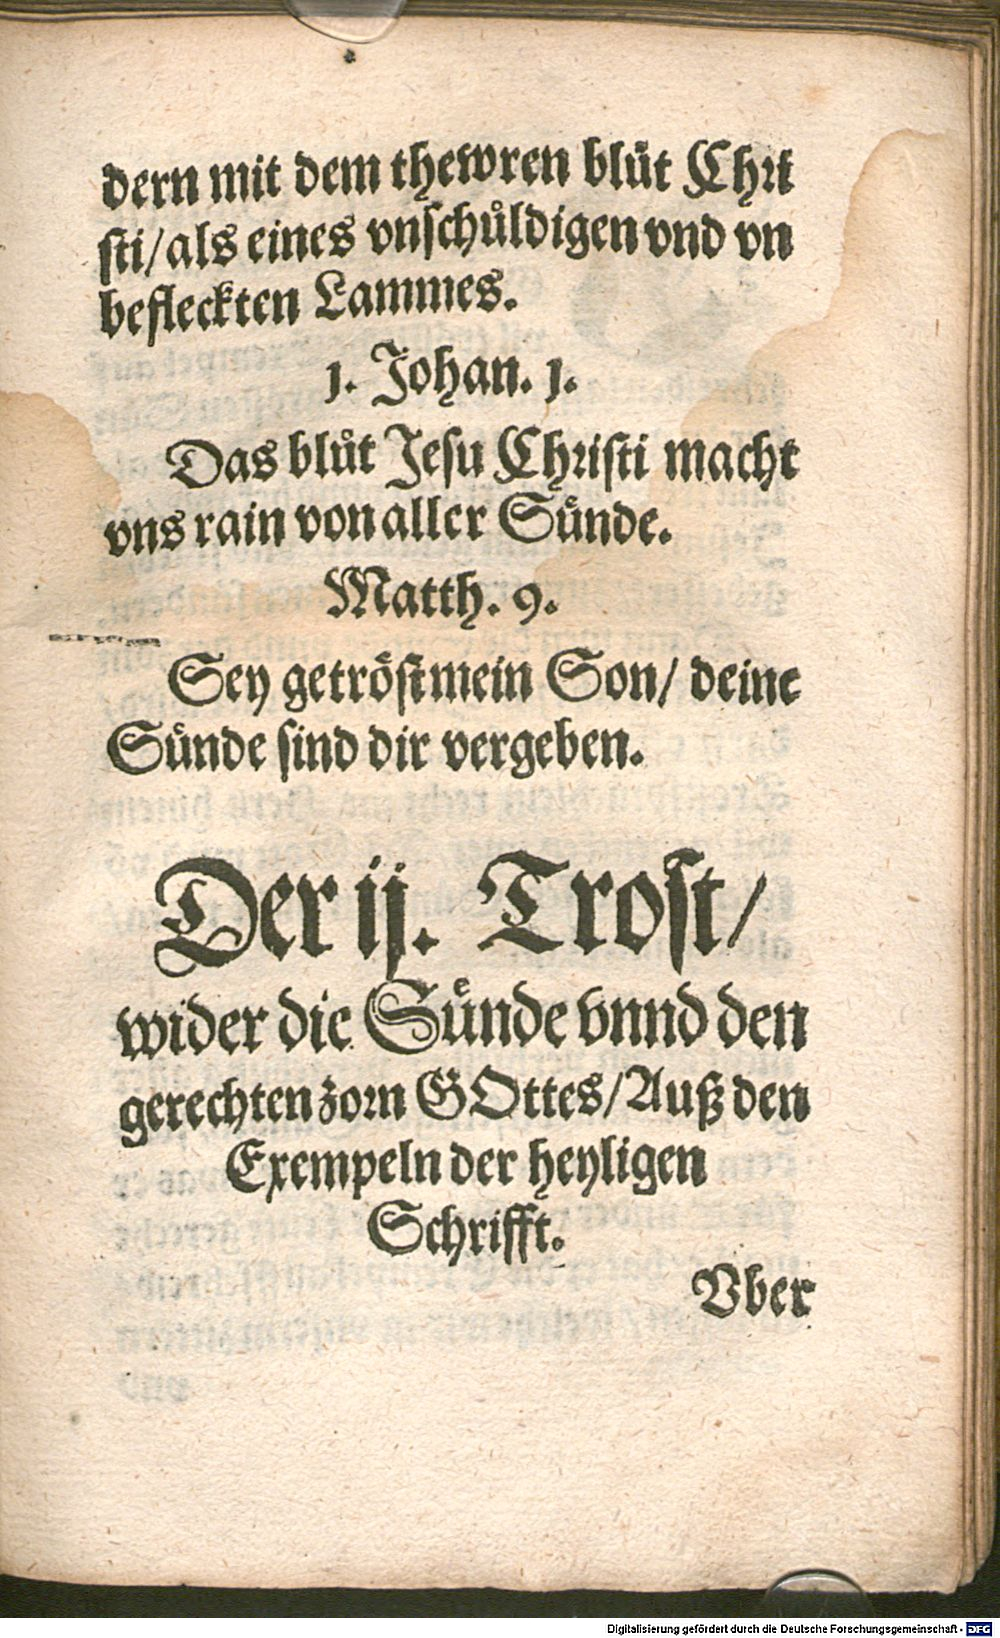 dern mit dem thewren blůt Chri
sti/als eines vnschůldigen vnd vn
befleckten Lammes.
1. Johan. 1.
Das blůt Jesu Christi macht
vns rain von aller Sünde.
Matth. 9.
Sey getröst mein Son/ deine
Sünde sind dir vergeben.
Der ij. Trost/
wider die Sünde vnnd den
gerechten zorn GOttes/Auß den
Exempeln der heyligen
Schrifft.
Vber
Digitalisierung gefördert durch die Deutsche Forschungsgemeinschaft - DFG